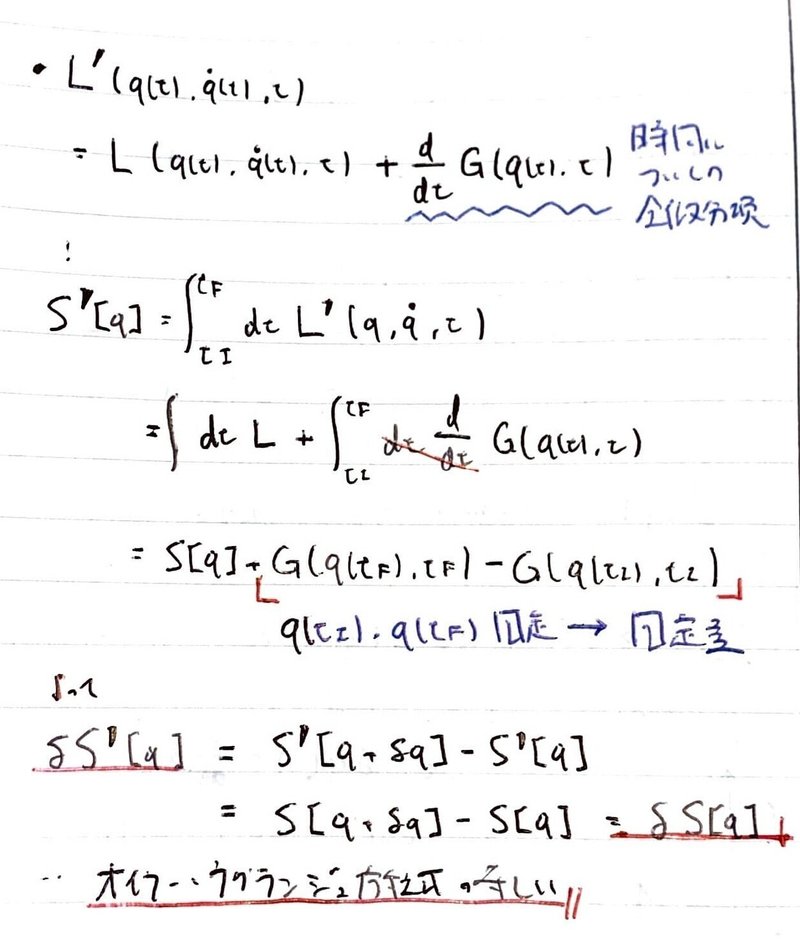 • L'(q(t), q̇(t), t)
= L(q(t), q̇(t), t) + d/dt G(q(t), t) 時間に
ついての
全微分項
S'[q] = ∫_{tI}^{tF} dt L'(q, q̇, t)
= ∫ dt L + ∫_{tI}^{tF} dt d/dt G(q(t), t)
= S[q] + G(q(tF), tF) - G(q(tI), tI)
q(tI), q(tF) 固定 → 固定
よって
δS'[q] = S'[q + δq] - S'[q]
= S[q + δq] - S[q] = δS[q]
オイラー・ラグランジュ方程式 等しい